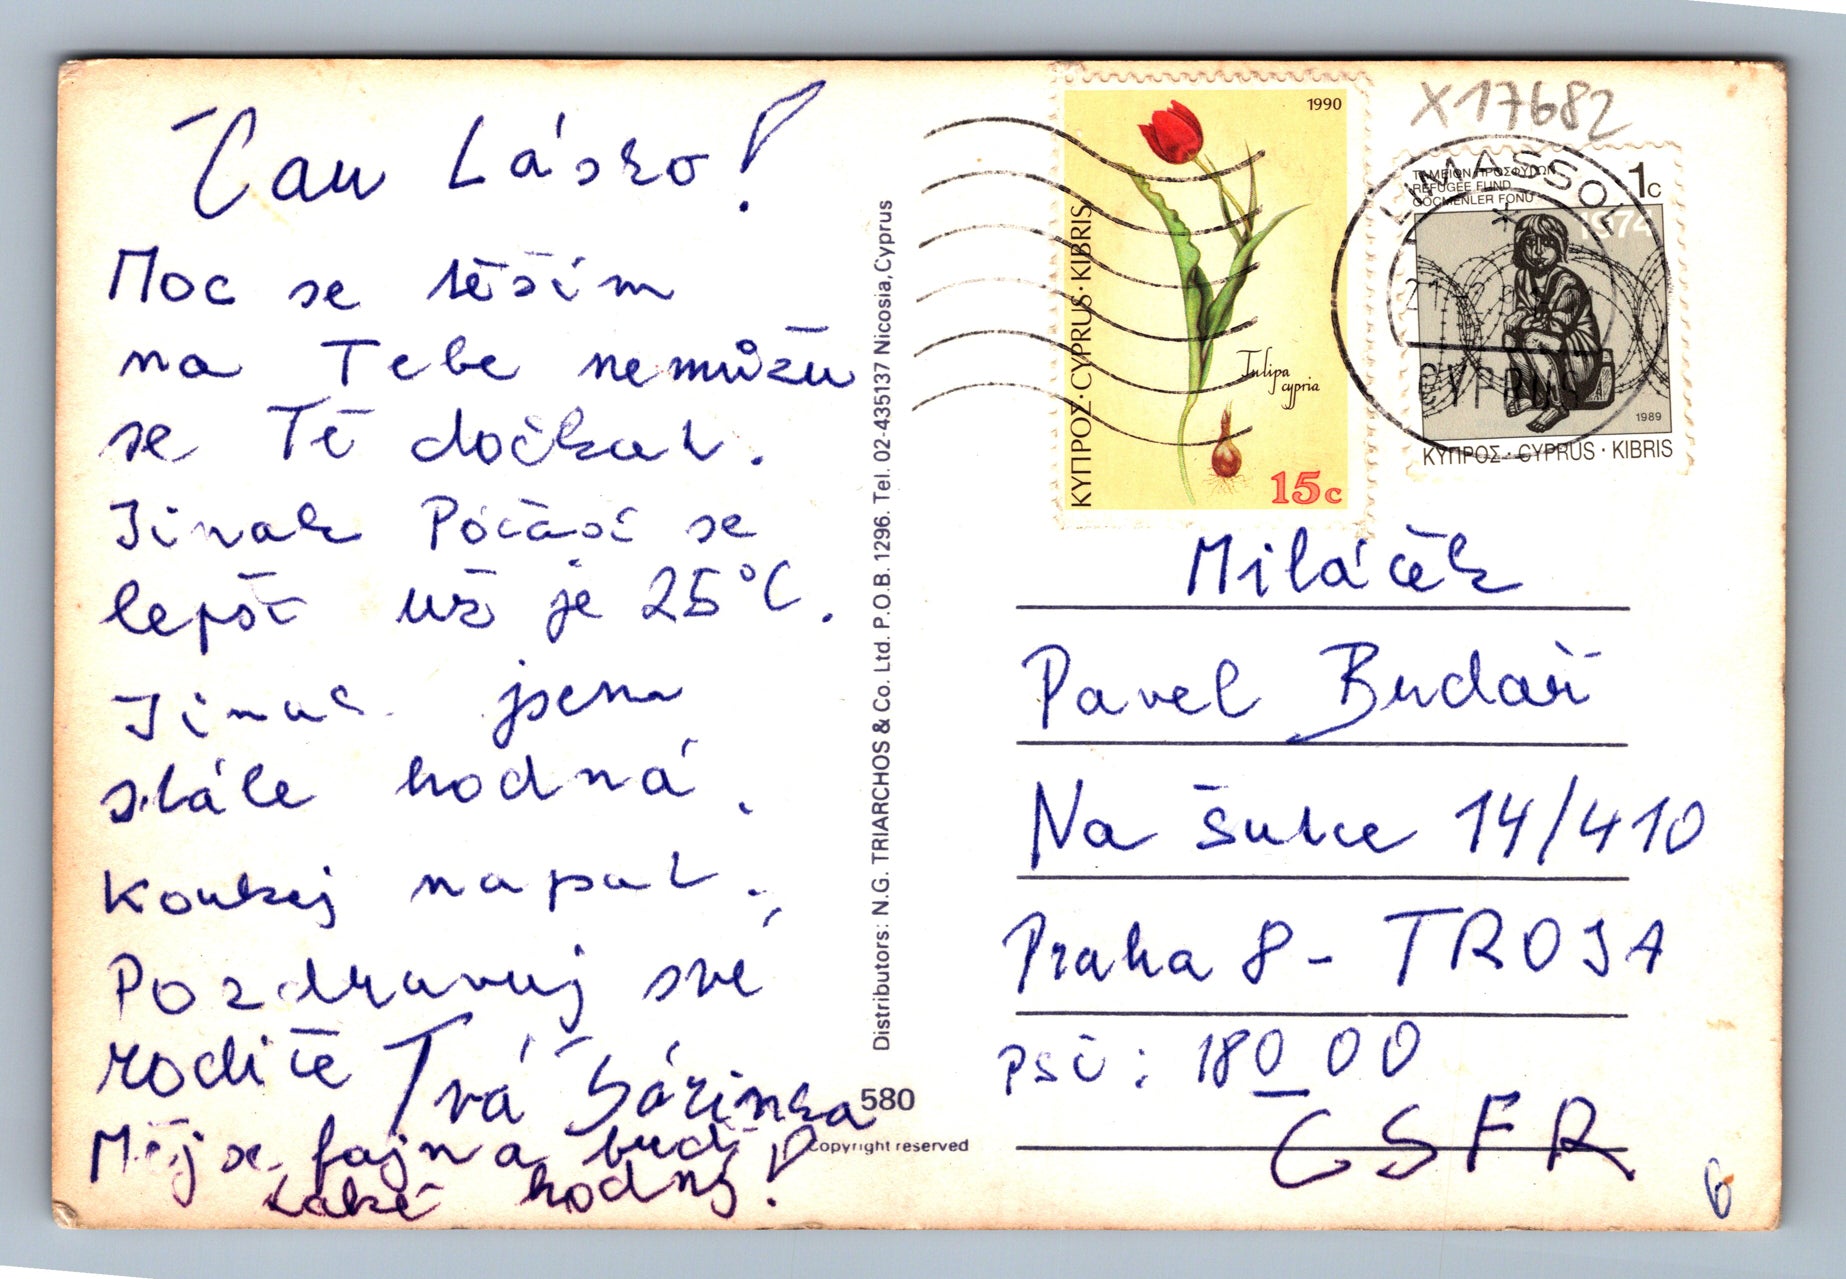 Čau Lásko!
Moc se těším
na Tebe nemůžu
se Tě dočkat.
Jinak Počasí se
lepší už je 25°C.
Jinak jsem
stále hodná.
Koukej napsat.
Pozdravuj své
rodiče Tvá Šárinka
Měj se fajn a buď
také hodný!
Distributors: N.G. TRIARCHOS & Co. Ltd. P.O.B. 1296. Tel. 02-435137 Nicosia, Cyprus
580
Copyright reserved
1990
ΚΥΠΡΟΣ·CYPRUS·KIBRIS
Tulipa
cypria
15c
X17682
LIMASSOL
CYPRUS
ΤΑΜΕΙΟΝ ΠΡΟΣΦΥΓΩΝ
REFUGEE FUND
GÖÇMENLER FONU
1c
1974
1989
ΚΥΠΡΟΣ·CYPRUS·KIBRIS
Miláček
Pavel
Na 14/410
Praha 8 - TROJA
PSČ: 180 00
ČSFR
6